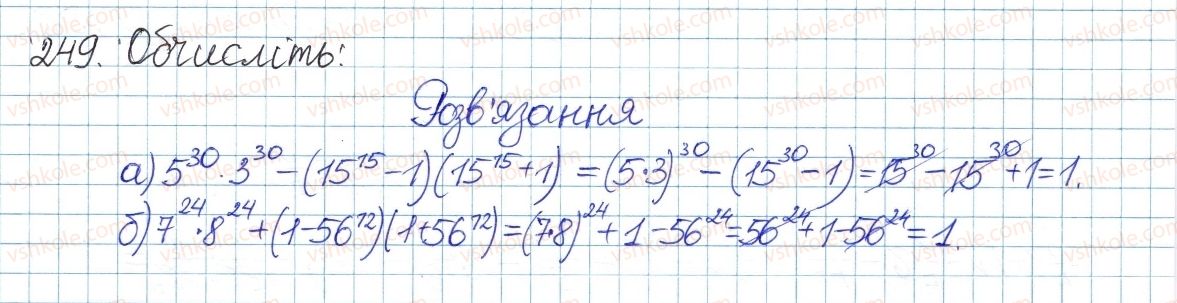 249. Обчисліть:
Розв'язання
а) 5^30 · 3^30 − (15^15 − 1)(15^15 + 1) = (5·3)^30 − (15^30 − 1) = 15^30 − 15^30 + 1 = 1.
б) 7^24 · 8^24 + (1 − 56^12)(1 + 56^12) = (7·8)^24 + 1 − 56^24 = 56^24 + 1 − 56^24 = 1.